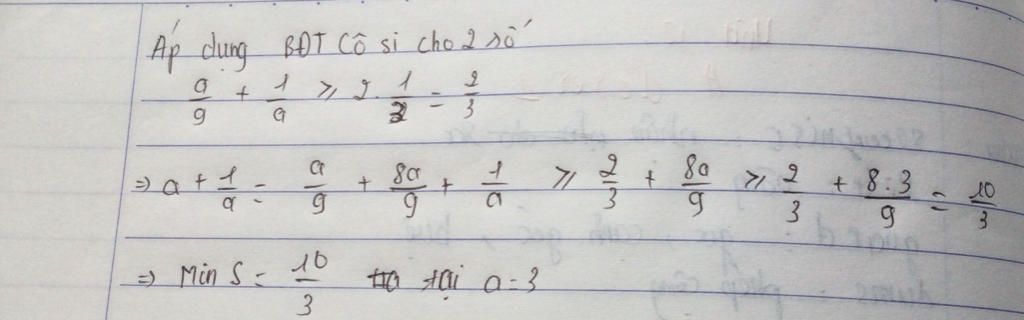 Áp dụng BĐT Cô si cho 2 số
a/9 + 1/a ≥ 2. 1/3 = 2/3
=> a + 1/a = a/9 + 8a/9 + 1/a ≥ 2/3 + 8a/9 ≥ 2/3 + 8.3/9 = 10/3
=> Min S = 10/3 tại a = 3